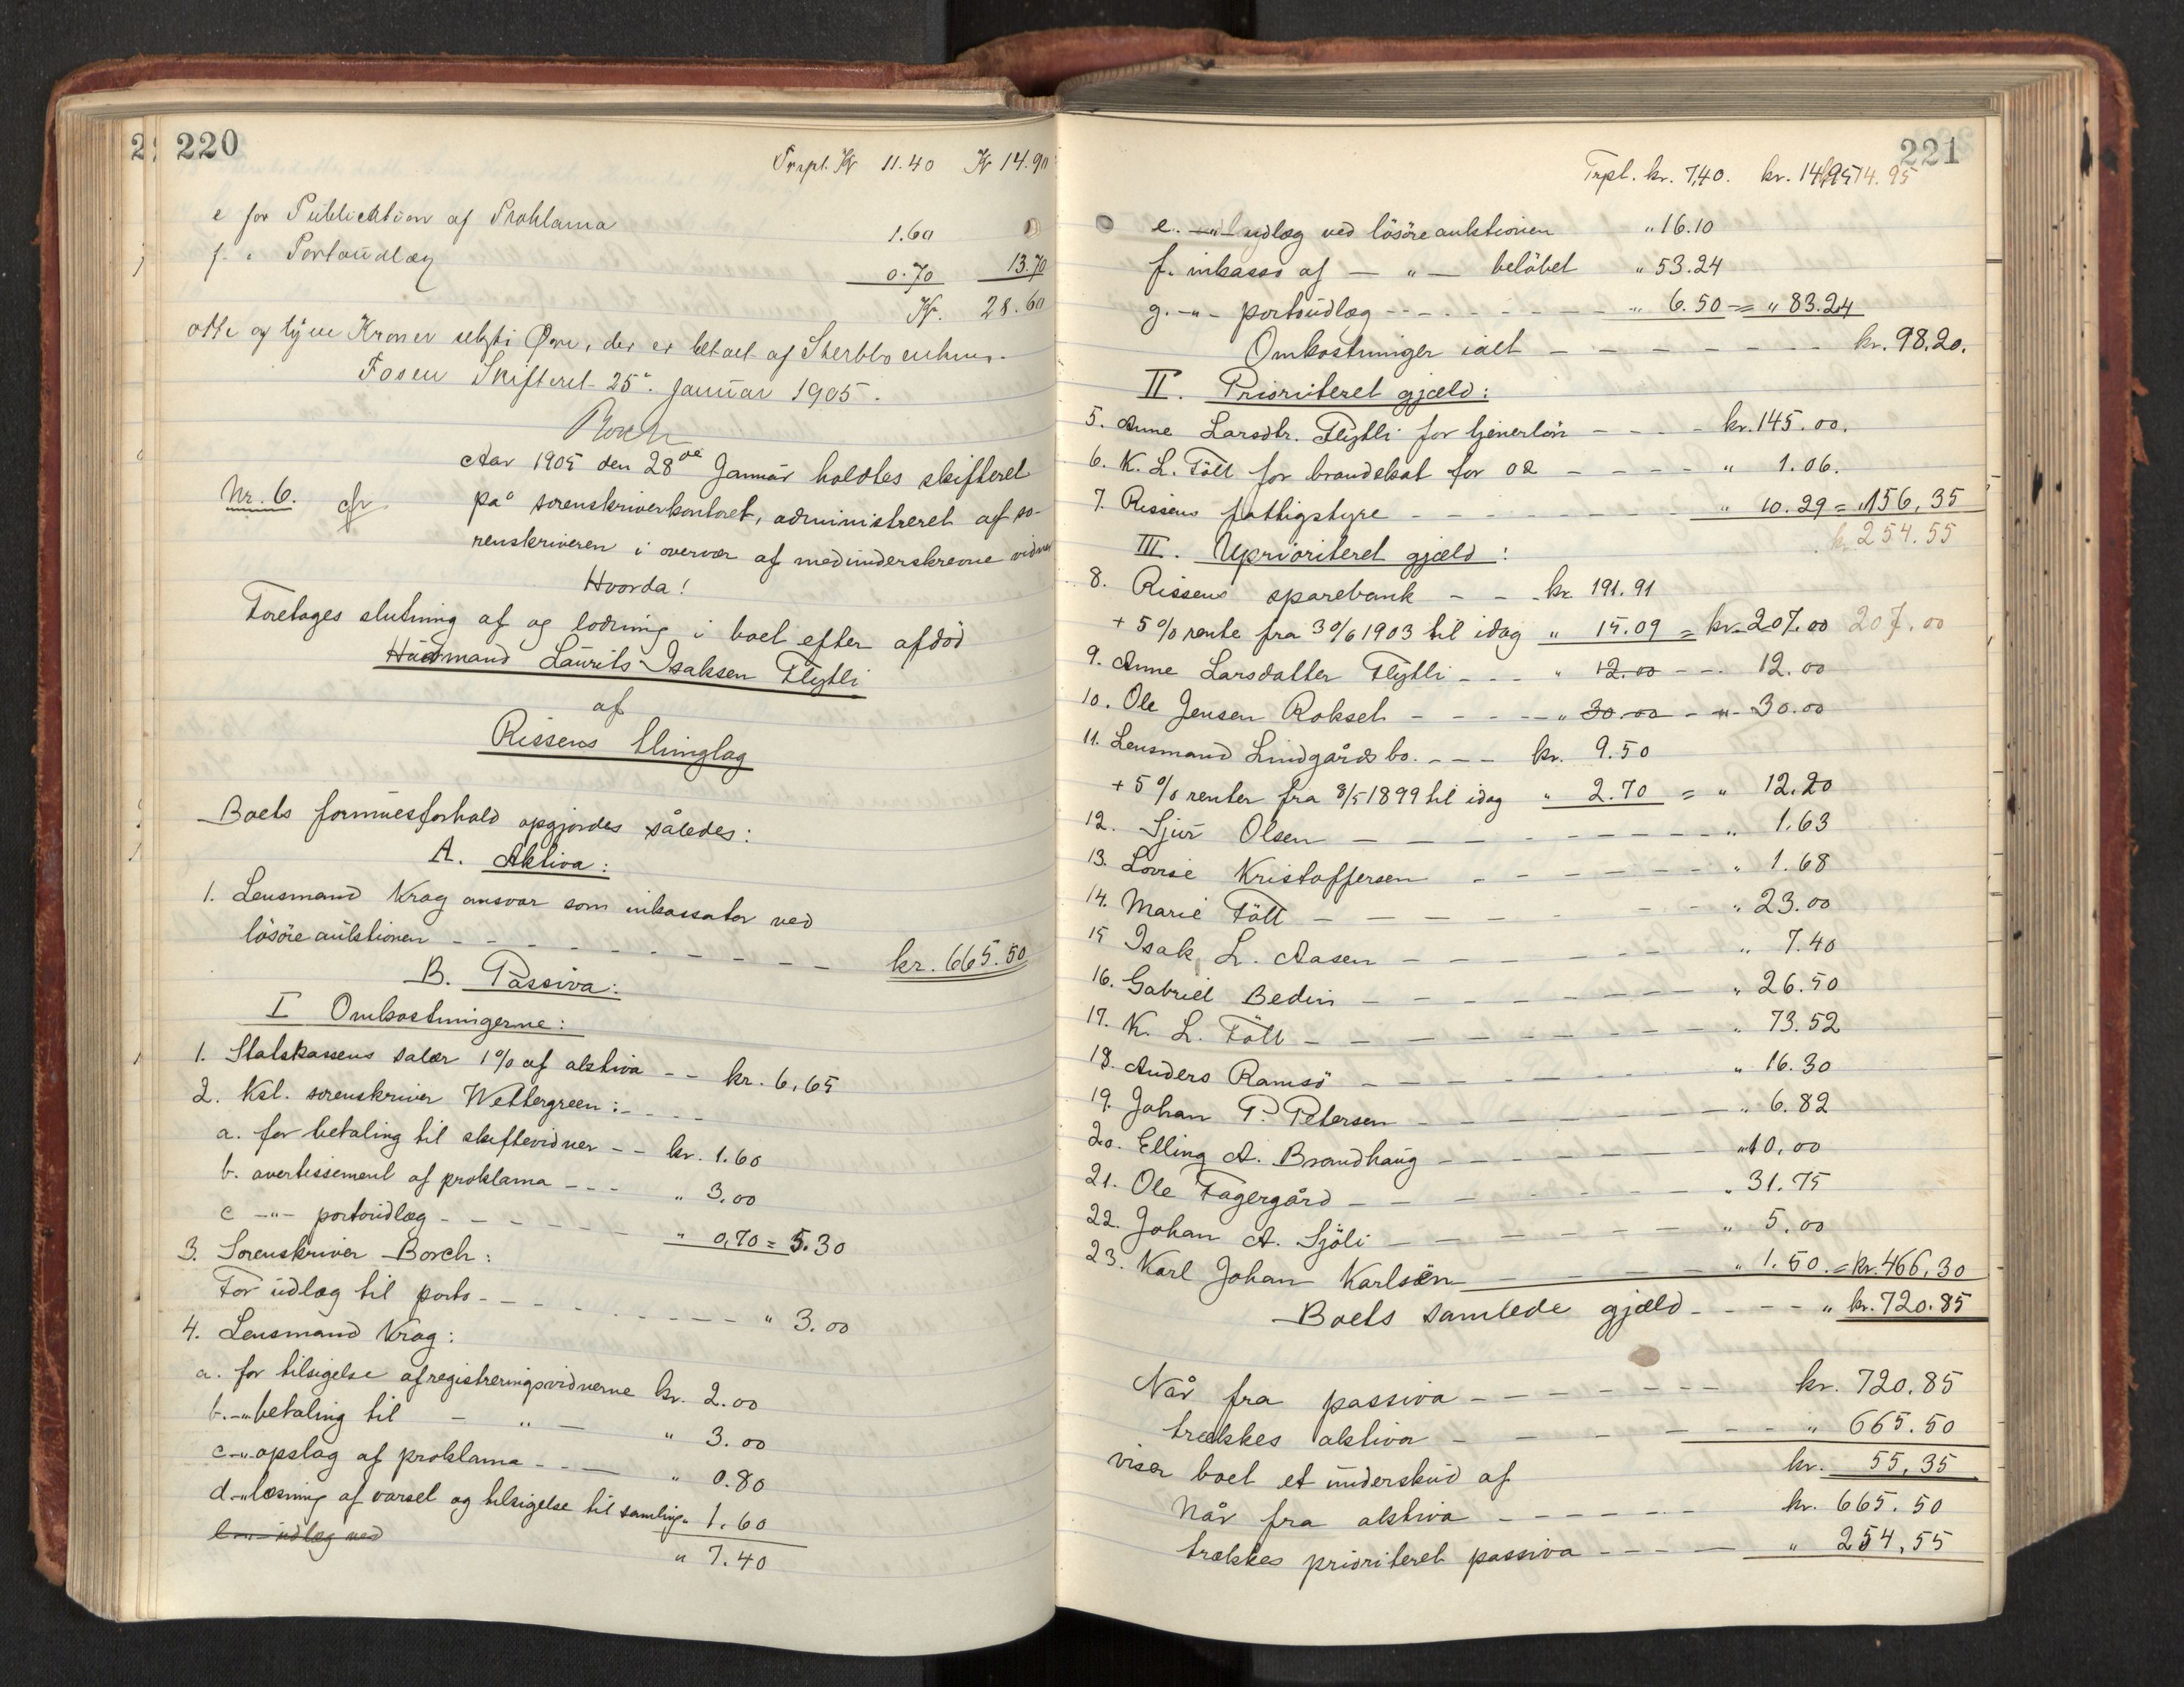 220
Trspt. Kr 11.40 Kr 14.90
e for Publication af Proklama 1.60
f. " Portoudlæg 0.70 13.70
Kr. 28.60
otte og tyve Kroner seksti Øre, der er betalt af Sterbboenken.
Fosen Skifteret 25d. Januar 1905.
Borch
Aar 1905 den 28de Januar holdtes skifteret
Nr. 6. på sorenskriverkontoret, administreret af so-
renskriveren i overvær af medunderskrevne vidner
Hvorda!
Foretages slutning af og lodning i boet efter afdød
Husmand Laurits Isaksen Flytli
af
Rissens thinglag
Boets formuesforhold opgjordes således:
A. Aktiva:
1. Lensmand Krag ansvar som inkassator ved
lösöreauktionen - - - - - - - - kr. 665.50
B. Passiva:
I Omkostningerne:
1. Statskassens salær 1% af aktiva - - kr. 6,65
2. Kst. sorenskriver Wettergreen: - - - -
a. for betaling til skiftevidner - - kr. 1.60
b. avertissement af proklama - - - " 3.00
c -"- portoudlæg - - - - - - " 0,70 = 5.30
3. Sorenskriver Borch:
For udlæg til porto - - - - - - - - - " 3.00
4. Lensmand Krag:
a. for tilsigelse af registreringsvidnerne kr. 2.00
b. -"- betaling til - " - " 3.00
c -"- opslag af proklama - - - " 0.80
d -"- læsning af varsel og tilsigelse til samling " 1.60
e -"- udlæg ved
" 7.40
221
Trpt. kr. 7,40. kr. 14,95 14.95
e. -"- udlæg ved lösöreauktionen " 16.10
f. inkasso af - " - beløbet " 53.24
g. -"- portoudlæg - - - - - - - " 6.50 = " 83.24
Omkostninger ialt - - - - - - - kr. 98,20.
II. Prioriteret gjæld:
5. Anne Larsdtr. Flytli for tjenerløn - - - - kr. 145.00.
6. K. L. Fött for brandskat for 02 - - - - " 1.06.
7. Rissens fattigstyre - - - - - - - " 10.29 = " 156,35
kr 254.55
III. Uprioriteret gjæld:
8. Rissens sparebank - - - kr. 191.91
+ 5% rente fra 30/6 1903 til idag " 15.09 = kr. 207.00 207.00
9. Anne Larsdatter Flytli - - - " 12.00 - - - 12.00
10. Ole Jensen Rokset - - - - - " 30.00 - " - 30.00
11. Lensmand Lindgårds bo. - - - kr. 9.50
+ 5% renter fra 8/5 1899 til idag " 2.70 = " 12.20
12. Sjur Olsen - - - - - - - - - " 1.63
13. Lovise Kristoffersen - - - - - - - " 1.68
14. Marie Fött - - - - - - - - " 23.00
15 Isak L. Aasen - - - - - - - " 7.40
16. Gabriel Bedin - - - - - - - - " 26.50
17. K. L. Fött - - - - - - - - - " 73.52
18. Anders Ramsö - - - - - - - " 16.30
19. Johan P. Petersen - - - - - - - " 6.82
20. Elling A. Brandhaug - - - - - - - " 10,00
21. Ole Fagergård - - - - - - - - " 31.75
22. Johan A. Sjöli - - - - - - - " 5.00
23. Karl Johan Karlsen - - - - - " 1.50. = kr. 466,30
Boets samlede gjæld - - - - " kr. 720.85
Når fra passiva - - - - - - - kr. 720.85
trækkes aktiva - - - - - - - " 665.50
viser boet et underskud af kr. 55,35
Når fra aktiva - - - - - - kr. 665.50
trækkes prioriteret passiva - - - - - " 254,55